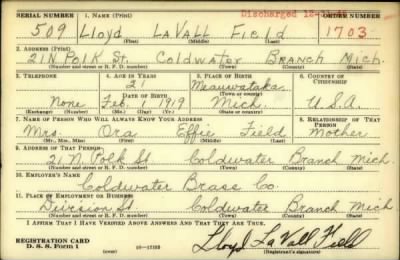 Discharged
SERIAL NUMBER 1. NAME (Print) ORDER NUMBER
509 Lloyd LaVall Field 1703
(First) (Middle) (Last)
2. ADDRESS (Print)
21 N Polk St. Coldwater Branch Mich.
(Number and street or R. F. D. number) (Town) (County) (State)
3. TELEPHONE 4. AGE IN YEARS 5. PLACE OF BIRTH 6. COUNTRY OF CITIZENSHIP
21
DATE OF BIRTH (Town or county)
None Feb. 1 1919 Mich. U.S.A.
(Exchange) (Number) (Mo.) (Day) (Yr.) (State or country)
7. NAME OF PERSON WHO WILL ALWAYS KNOW YOUR ADDRESS 8. RELATIONSHIP OF THAT PERSON
Mrs. Ora Effie Field Mother
(Mr., Mrs., Miss) (First) (Middle) (Last)
9. ADDRESS OF THAT PERSON
21 N. Polk St Coldwater Branch Mich
(Number and street or R. F. D. number) (Town) (County) (State)
10. EMPLOYER'S NAME
Coldwater Brass Co.
11. PLACE OF EMPLOYMENT OR BUSINESS
Division St. Coldwater Branch Mich
(Number and street or R. F. D. number) (Town) (County) (State)
I AFFIRM THAT I HAVE VERIFIED ABOVE ANSWERS AND THAT THEY ARE TRUE.
REGISTRATION CARD
D. S. S. Form 1 (over) 16—17105 Lloyd LaVall Field
(Registrant's signature)